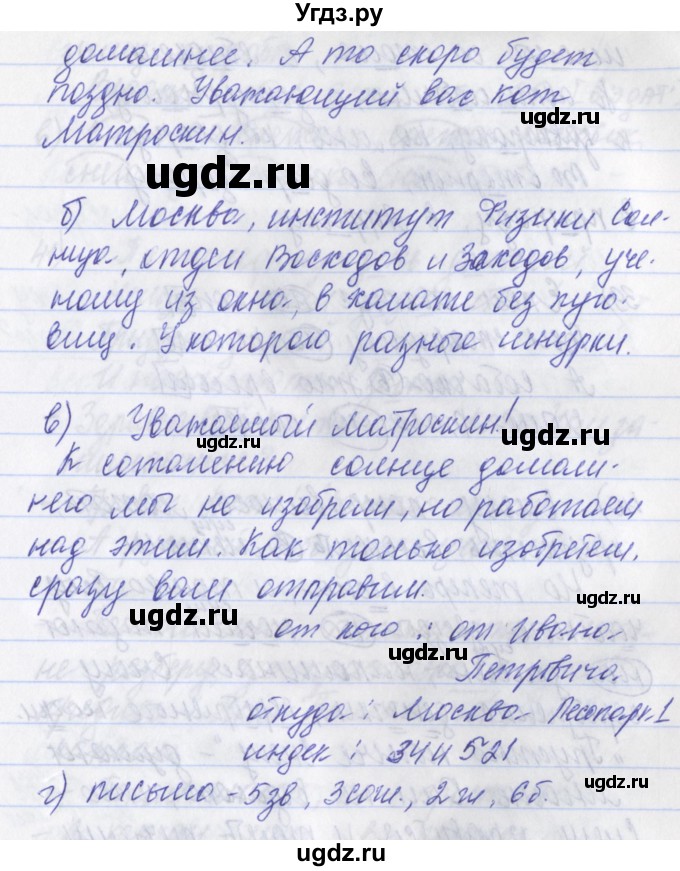 Угдз.ру
домашнее. А то скоро будет
поздно. Уважающий вас кот
ugdz.ru
Матроскин.
ugdz.ru
б) Москва, институт Физики Сол-
нца, отдел Восходов и Заходов, уче-
ному из окна, в халате без пуго-
виц. У которого разные шнурки.
в) Уважаемый Матроскин!
ugdz.ru
ugdz.ru
К сожалению солнце домаш-
него мы не изобрели, но работаем
над этим. Как только изобретем,
сразу вам отправим.
ugdz.ru
ugdz.ru
от кого: от Ивана
ugdz.ru
Петровича.
откуда: Москва Лесопарк 1
индек: 344521
г) письмо - 5зв, 3сог., 2гл, 6б.
ugdz.ru
ugdz.ru